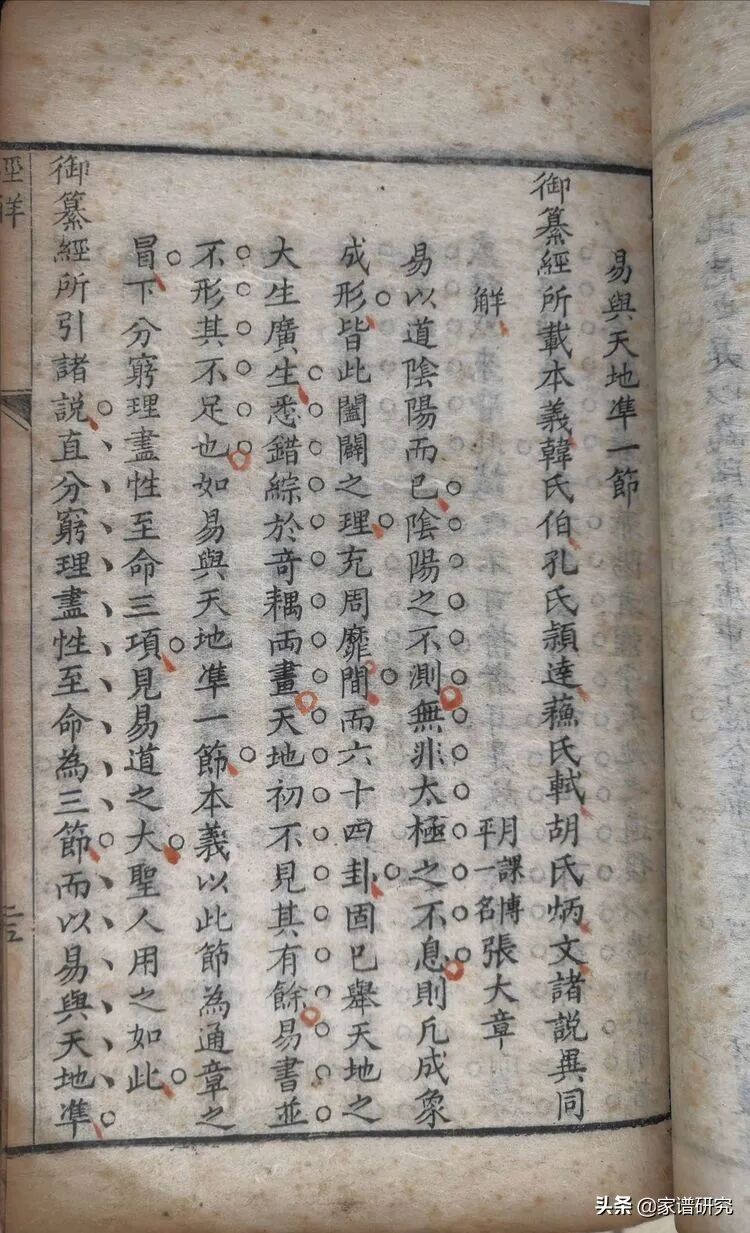 易與天地準一節
御纂經所載本義韓氏伯孔氏穎達蘓氏軾胡氏炳文諸說異同
解
月課博
平一名
張大章
易以道陰陽而已陰陽之不測無非太極之不息則凡成象
成形皆此闔闢之理充周靡間而六十四卦固已舉天地之
大生廣生悉錯綜於奇耦兩畫天地初不見其有餘易書並
不形其不足也如易與天地準一節本義以此節為通章之
冒下分窮理盡性至命三項見易道之大聖人用之如此
御纂經所引諸說直分窮理盡性至命為三節而以易與天地準
頭条 @家谱研究